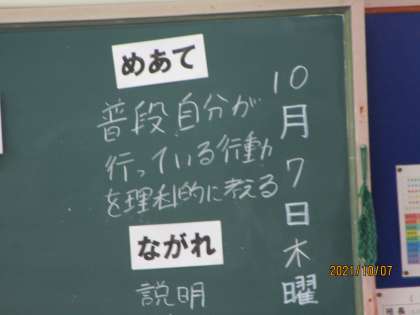 10月7日木曜
めあて
普段自分が
行っている行動
を理科的に考える
ながれ
説明
2021/10/07
班長